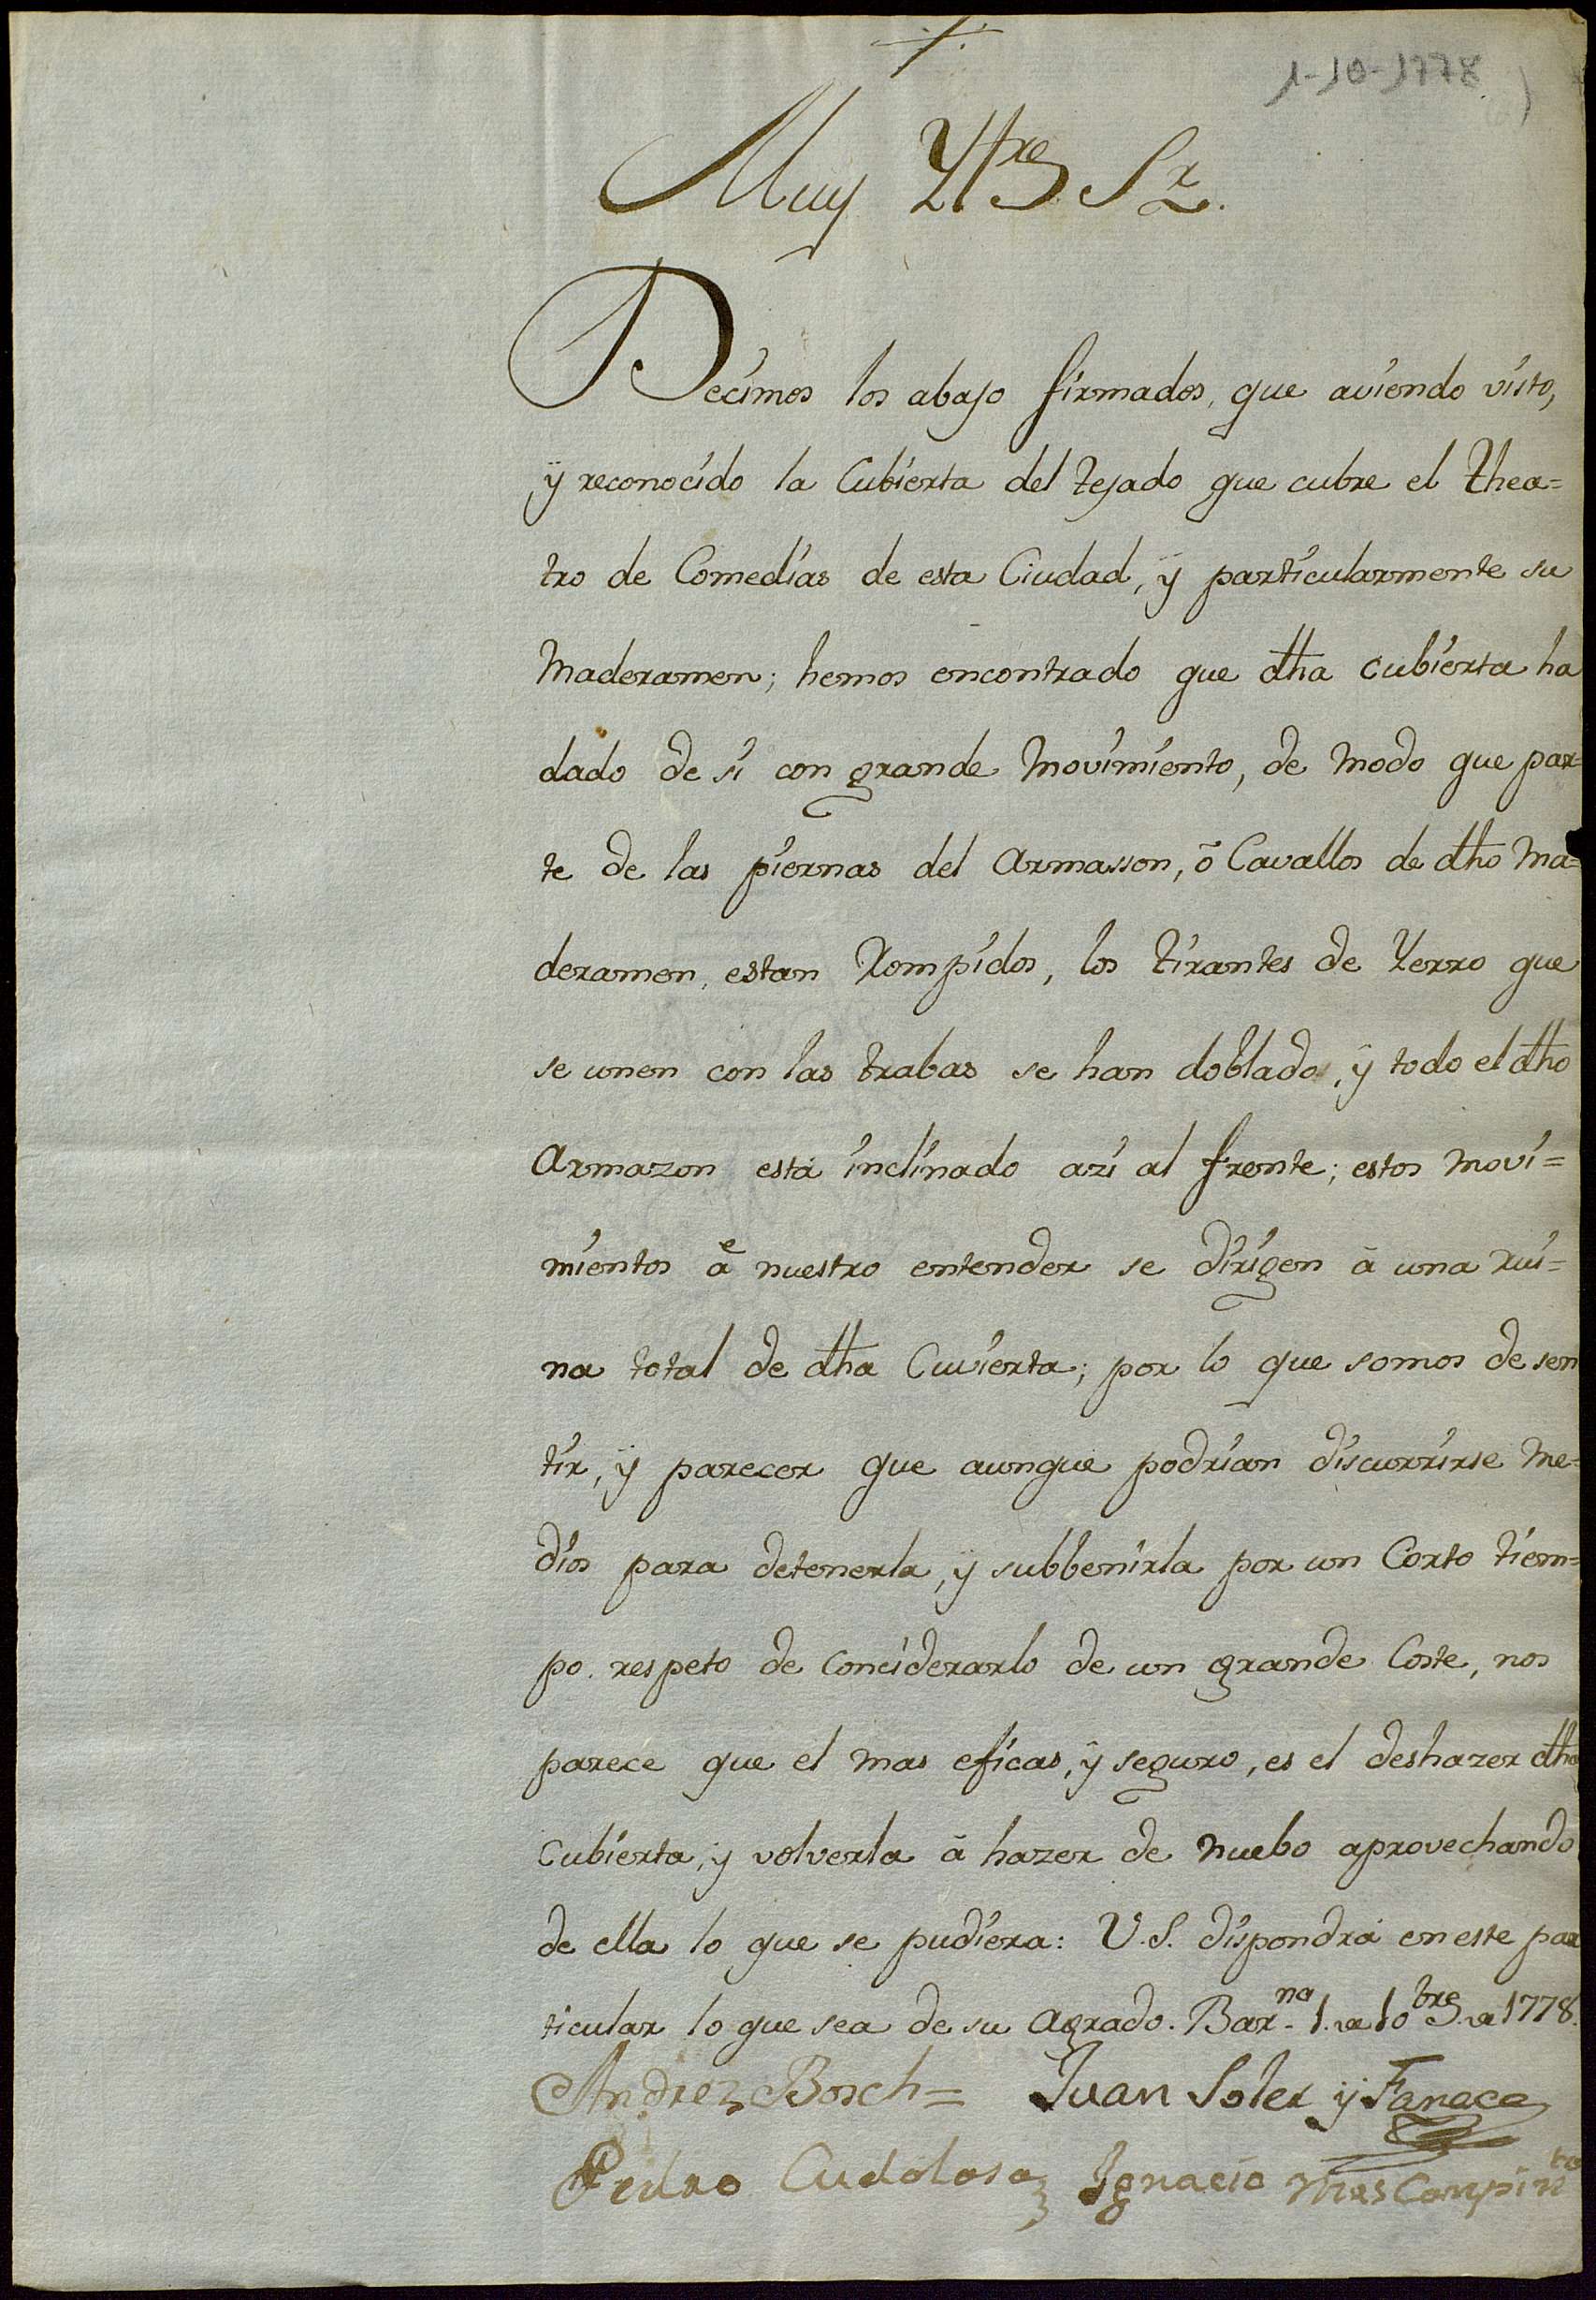 1-10-1778
Muy Yltre Sr.
Decimos los abajo firmados, que aviendo visto,
ÿ reconocido la Cubierta del tejado que cubre el thea=
tro de Comedias de esta Ciudad, ÿ particularmente su
Maderamen; hemos encontrado que dha cubierta ha
dado de si con grande Movimiento, de modo que par=
te de las piernas del Armasson, ō Cavallos de dho Ma=
deramen, estan Rompidos, los tirantes de Yerro que
se unen con las trabas se han doblado, ÿ todo el dho
Armazon està inclinado azi al frente; estos movi=
mientos ā nuestro entender se dirigen ā una rui=
na total de dha Cuvierta; por lo que somos de sen
tir, ÿ parecer que aunque podrian discurrirse me=
dios para detenerla, ÿ subbenirla por un Corto tiem=
po. respeto de Conciderarlo de un grande Coste, nos
parece que el mas eficas, ÿ seguro, es el deshazer dha
Cubierta, ÿ volverla ā hazer de nuebo aprovechando
de ella lo que se pudiera: V.S. dispondrà en este par
ticular lo que sea de su agrado. Barna 1. de 10bre de 1778.
Andrez Bosch= Juan Soler ÿ Faneca
Pedro Cudolosa Ignacio Mas